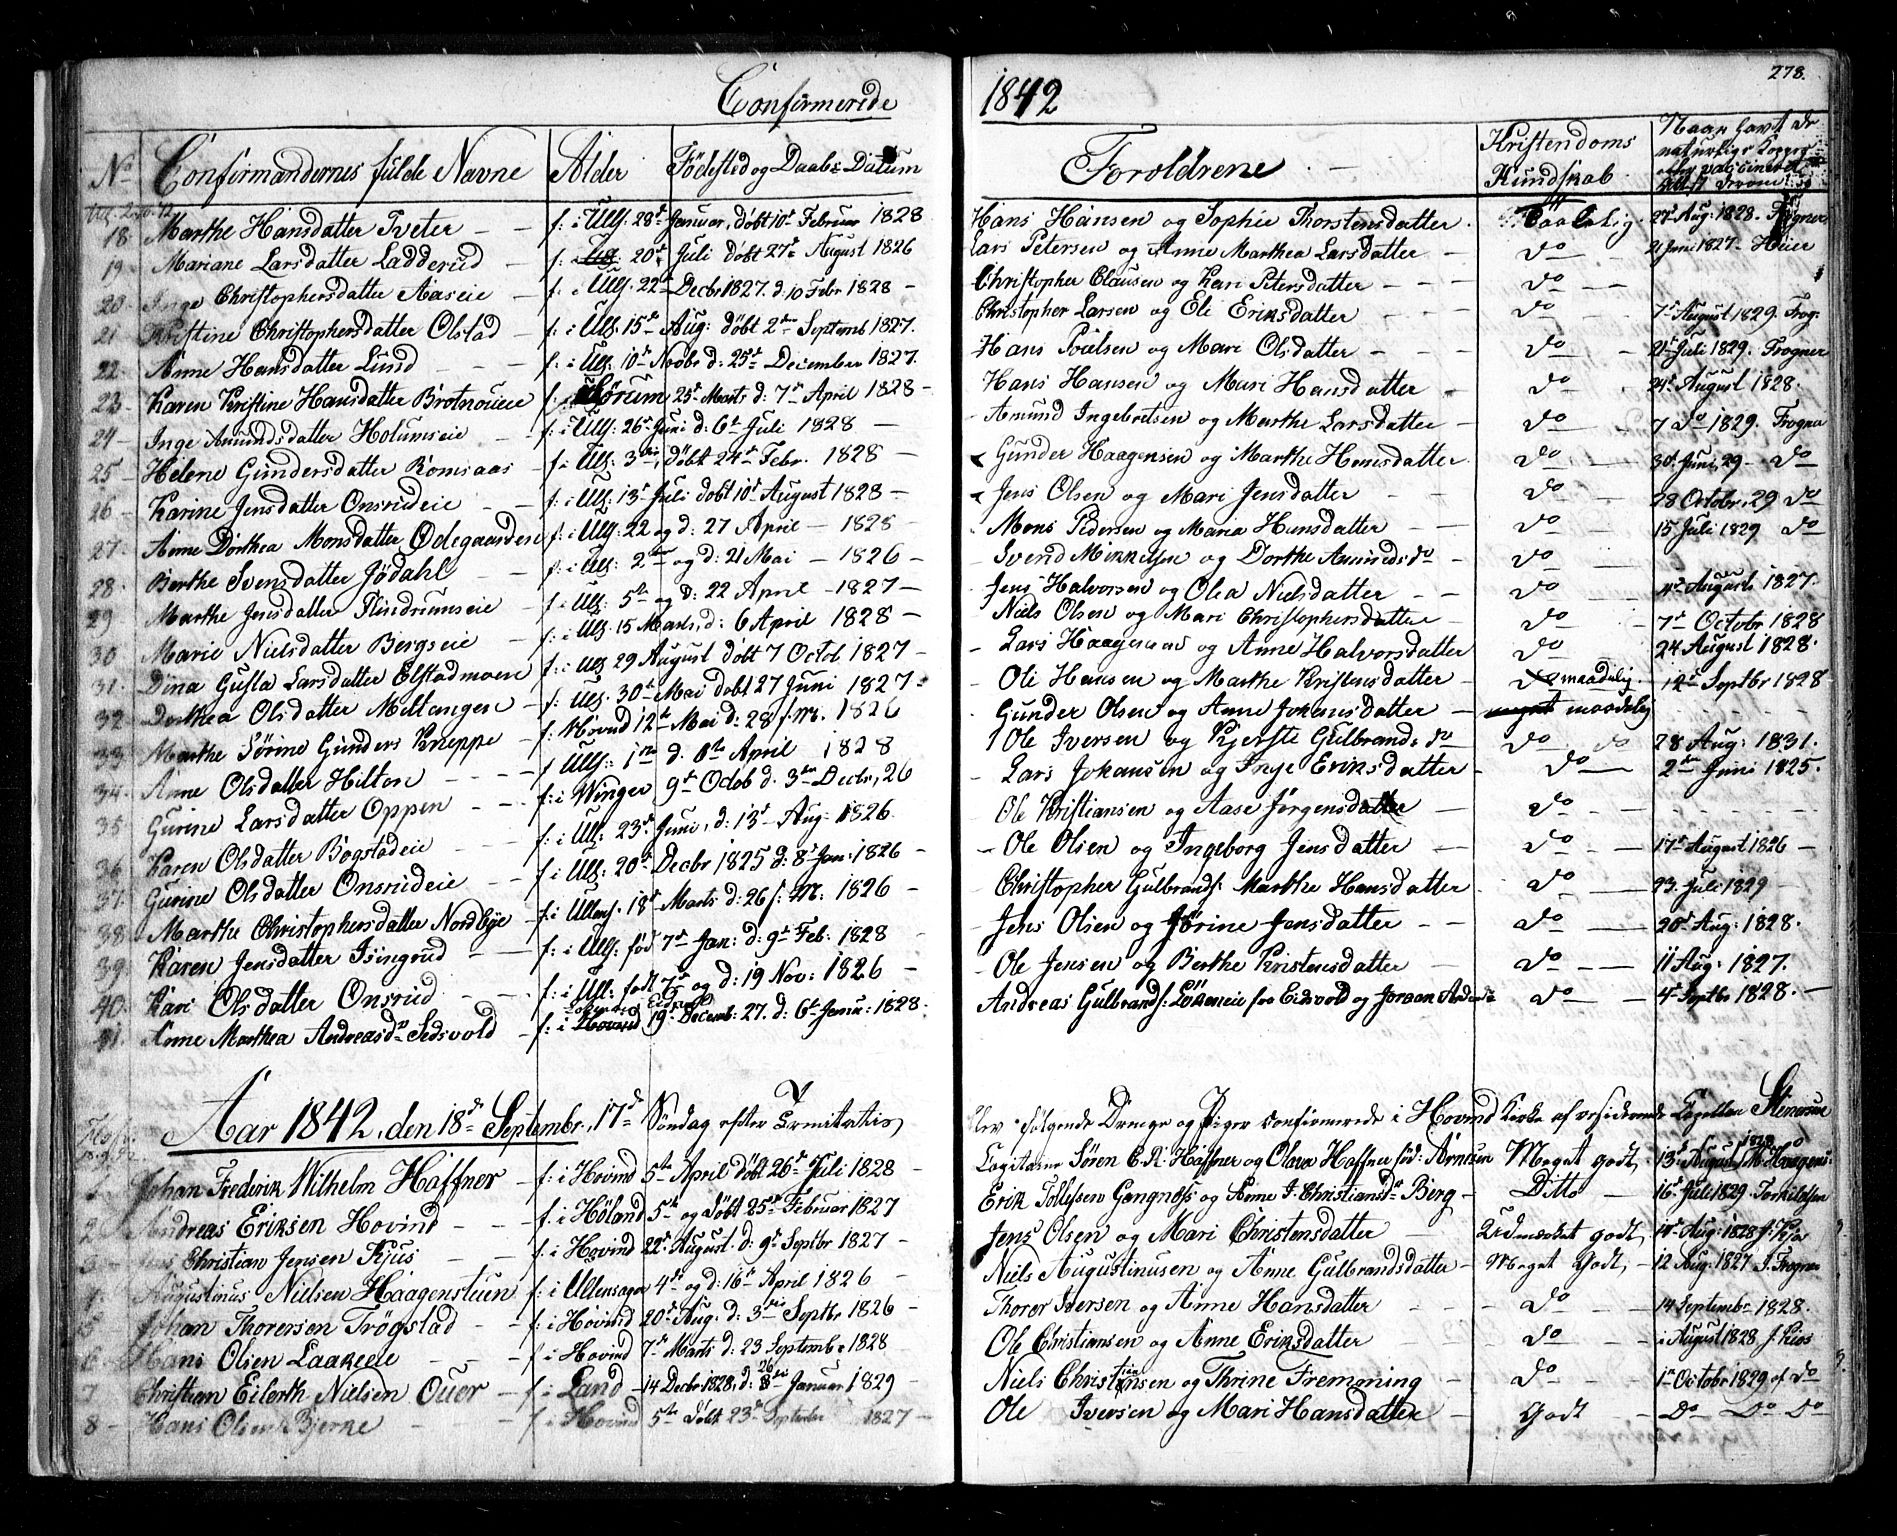 Confirmerede
No Confirmandernes fulde Navne Alder Födested og Daabs-Datum
18. Marthe Hansdatter Tveter f: i Ulls: 28de Januar, döbt 10de Februar 1828
19. Mariane Larsdatter Ladderud f: 20de Juli döbt 27de August 1826
20. Inge Christophersdatter Aaseie f: i Ulls: 22de Decbr 1827. d: 10 Febr 1828
21. Kristine Christophersdatter Olstad f: i Ulls: 15de Aug: döbt 2den Septemb 1827.
22. Anne Hansdatter Lund f: i Ulls: 10de Novbr d: 25de December 1827.
23. Karen Kristine Hansdatter Brotnoueie f: Sörum 25de Marts d: 7de April 1828
24. Inge Amundsdatter Holumseie f: i Ulls: 26de Juni d: 6te Juli 1828
25. Helene Gundersdatter Romsaas f: i Ulls: 3die, döbt 24de Febr. 1828
26. Karine Jensdatter Onsrudeie f: i Ulls: 13de Juli döbt 10de August 1828
27. Anne Dorthea Monsdatter Ödegaarden f: i Ulls: 22 og d: 27 April 1828
28. Berthe Svensdatter Jödahl f: i Ulls: 2den og d: 21 Mai 1826
29. Marthe Jensdatter Flindrumseie f: i Ulls: 5te og d: 22 April 1827
30. Marie Nielsdatter Bergseie f: i Ulls: 15 Marts, d: 6 April 1828
31. Dina Gusta Larsdatter Elstadmoen f: i Ulls 29 August döbt 7 Octob. 1827
32. Dorthea Olsdatter Meltangen f: i Ulls: 30te Mai döbt 27 Juni 1827
33. Marthe Sörine Gunders Kneppe f: Hovind 12te Mai d: 28 s. M. 1826
34. Anne Olsdatter Hilton f Ulls: 1ste d. 8de April 1828
35. Gurine Larsdatter Oppen f: i Winger 9de Octob d. 3den Decbr, 26
36. Karen Olsdatter Bogstadeie f: i Ull: 23de Juni, d: 13de Aug: 1826
37. Gurine Olsdatter Onsrudeie f: i Ulls: 20de Decbr 1825 d: 8de Jan: 1826
38. Marthe Christophersdatter Nordbye f: i Ullens: 18de Marts d: 26 s: M: 1826
39. Karen Jensdatter Isingrud f: i Ulls: föd 7de Jan: d: 9de Feb: 1828
40. Kari Olsdatter Onsrud f: i Ull: födt og d: 19 Nov: 1826
41. Anne Marthea Andreasd: Sedsvold f: i Hovind Eidsvold 19de Decemb: 27. d: 6te Janu: 1828.
Aar 1842, den 18de Septembr. 17de Söndag efter Trinitatis
Johan Frederik Wilhelm Haffner f: i Hovind 5te April döbt 26de Juli 1828
2 Andreas Eriksen Hovind f: i Höland 5te og Döbt 25de Februar 1827
3 Christian Jensen Kjus f: i Hovind 22de August d: 9de Septbr 1827
Augustinus Nielsen Haagenstuen f: i Ullensager 4de og d: 16de April 1826
5 Johan Thorersen Trögstad f: i Hovind 20de Aug. d: 3die Septbr 1826
6 Hans Olsen Laakeeie f i Hovind 7de Marts d: 23 Septembr 1828
7 Christian Eilerth Nielsen Ouer f i Land 14 Decbr 1828, d: 26 Januar 1829
8 Hans Olsen Bjerke f i Hovind 5te Döbt 23de September 1827
1842
278.
Forældrene Kristendoms Kundskab Naar havt de naturlige Kopper eller vaccinerede
Hans Hansen og Sophie Thorstensdatter Taalelig 27de Aug: 1828. Frogner
Lars Petersen og Anne Marthea Larsdatter do 21 Juni 1827 Heier
Christopher Clausen og Kari Petersdatter do
Christopher Larsen og Eli Eriksdatter do 7de August 1829. Frog-
Hans Poulsen og Mari Olsdatter do 21de Juli 1829. Frogner
Hans Hansen og Mari Hansdatter do 24de August 1828.
Amund Ingebretsen og Marthe Larsdatter do 7 do 1829. Frogner
Gunder Haagensen og Marthe Hansdatter do 30te Juni, 29 do
Jens Olsen og Mari Jensdatter do 28 Octobr, 29 do
Mons Pedersen og Maria Hansdatter do 15 Juli 1829 do
Svend Mikkelsen og Dorthe Amundsdr do
Jens Halvorsen og Olea Nielsdatter do 4de August 1827
Niels Olsen og Mari Christophersdatter do 7de Octobr 1828
Lars Haagensen og Anne Halvorsdatter do 24 August 1828.
Ole Hansen og Marthe Kristensdatter maadelig 12te Septbr 1828
Gunder Olsen og Anne Johansdatter maadelig
Ole Iversen og Kjerste Gulbrandsdr do do 28 Aug: 1831.
Lars Johansen og Inge Eriksdatter do 2den Juni 1825.
Ole Kristiansen og Aase Jörgensdatter do
Ole Olsen og Ingeborg Jensdatter do 17de August 1826
Christopher Gulbrands: Marthe Hansdatter do 23. Juli 1829
Jens Olsen og Jörine Jensdatter do 20de Aug: 1828.
Ole Jensen og Berthe Kristensdatter do 11 Aug: 1827.
Andreas Gulbrands: Lökeneie fra Eidsvold og Joraan Andersd do 4de Septbr 1828.
Blev fölgende Drenge og Piger confirmerede i Hovind Kirke af residerende Capellan Stenersen
Capitaine Sören C. R. Haffner og Olava Haffner föd: Arnesen Meget godt, 13de August 1828
Erik Tollefsen Gangnæs og Anne J. Christiansdr Berg Ditto 16de Juli 1829 Torkildsen
Jens Olsen og Mari Christensdatter Udmærket godt, 14de Aug: 1828 f. Kjos
Niels Augustinusen og Anne Gulbrandsdatter Meget Godt, 12 Aug: 1827 f. Frogner
Thorer Iversen og Anne Hansdatter do 14 Septembr 1828.
Ole Christiansen og Anne Eriksdatter do i August 1828 f. Kios
Niels Christensen og Thrine Fremming do 1ste Octobr 1829 af do
Ole Iversen og Mari Hansdatter Godt Do Do Do